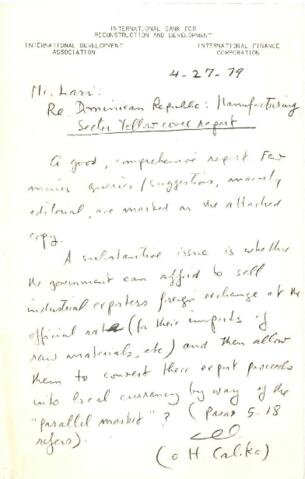 INTERNATIONAL BANK FOR
RECONSTRUCTION AND DEVELOPMENT
INTERNATIONAL DEVELOPMENT
ASSOCIATION
INTERNATIONAL FINANCE
CORPORATION
4-27-79
Mr. Lari:
Re Dominican Republic: Manufacturing
Sector Yellow cover report
A good, comprehensive report. Few
minor queries/suggestions, mainly
editorial, are marked on the attached
copy.
A substantive issue is whether
the government can afford to sell
industrial exporters foreign exchange at the
official rate (for their imports of
raw materials, etc) and then allow
them to convert their export proceeds
into local currency by way of the
"parallel market"? (Para 5.18
refers).
(O H Calika)